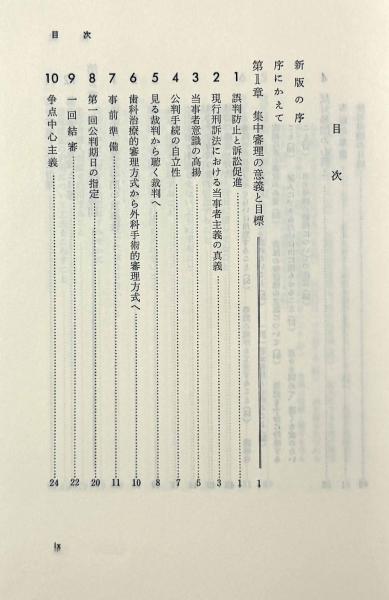 目 次
目 次
新版の序
序にかえて
第1章 集中審理の意義と目標 1
1 誤判防止と訴訟促進 1
2 現行刑訴法における当事者主義の真義 3
3 当事者意識の高揚 5
4 公判手続の自立性 7
5 見る裁判から聴く裁判へ 8
6 歯科治療的審理方式から外科手術的審理方式へ 10
7 事前準備 11
8 第一回公判期日の指定 20
9 一回結審 22
10 争点中心主義 24
ix